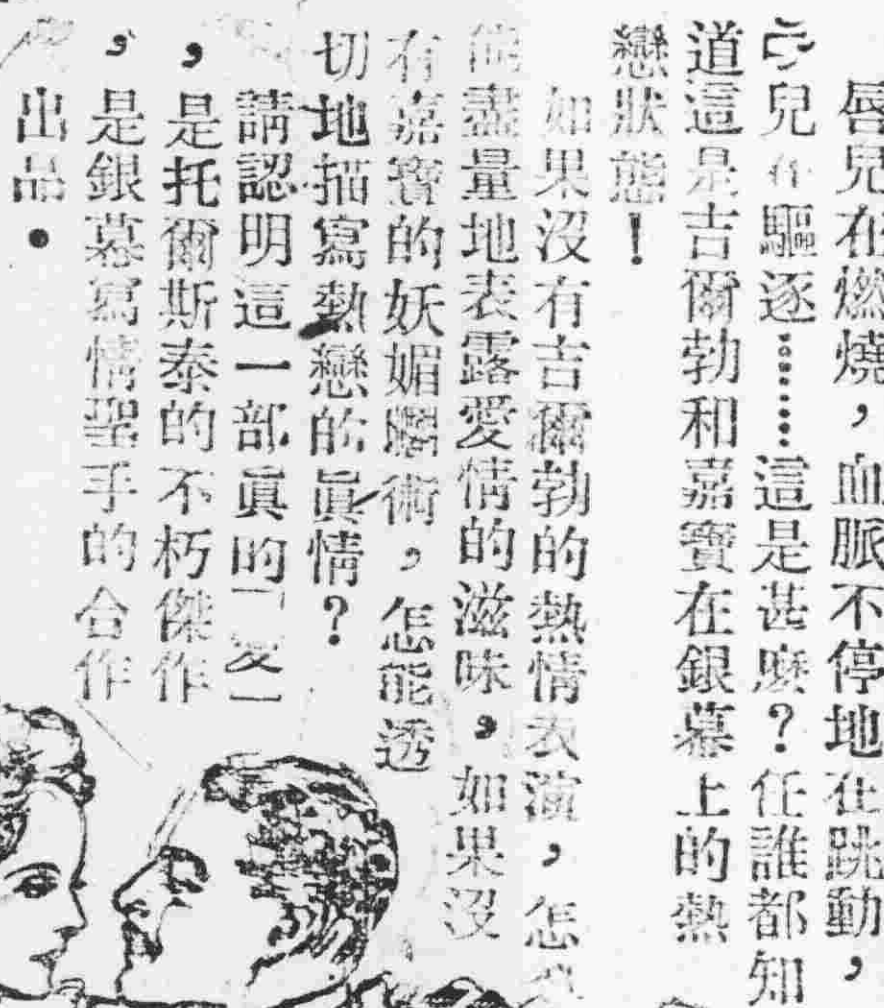 唇兒在燃燒，血脈不停地在跳動，
兒在驅逐⋯⋯這是甚麼？任誰都知
道這是吉爾勃和嘉寶在銀幕上的熱
戀狀態！
如果沒有吉爾勃的熱情表演，怎
能盡量地表露愛情的滋味。如果沒
有嘉寶的妖媚術，怎能透
切地描寫熱戀的眞情？
請認明這一部眞的「愛」
，是托爾斯泰的不朽傑作
，是銀幕寫情聖手的合作
出品．